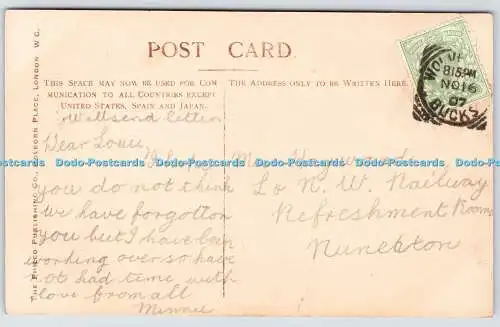 POST CARD.
THIS SPACE MAY NOW BE USED FOR COM
MUNICATION TO ALL COUNTRIES EXCEPT
UNITED STATES, SPAIN AND JAPAN.
THE ADDRESS ONLY TO BE WRITTEN HERE.
THE PHILCO PUBLISHING CO., HOLBORN PLACE, LONDON W C.
Will send letter
Dear Louie
I hope
you do not think
we have forgotton
you but I have been
working over so have
not had time with
love from all
Minnie
Hayward
L & N. W. Railway
Refreshment Rooms
Nuneaton
815PM
NO 16
07
BUCKS
Dodo-Postcards Dodo-Postcards Dodo-Postcards Dodo-Postcards Dodo-Postcards